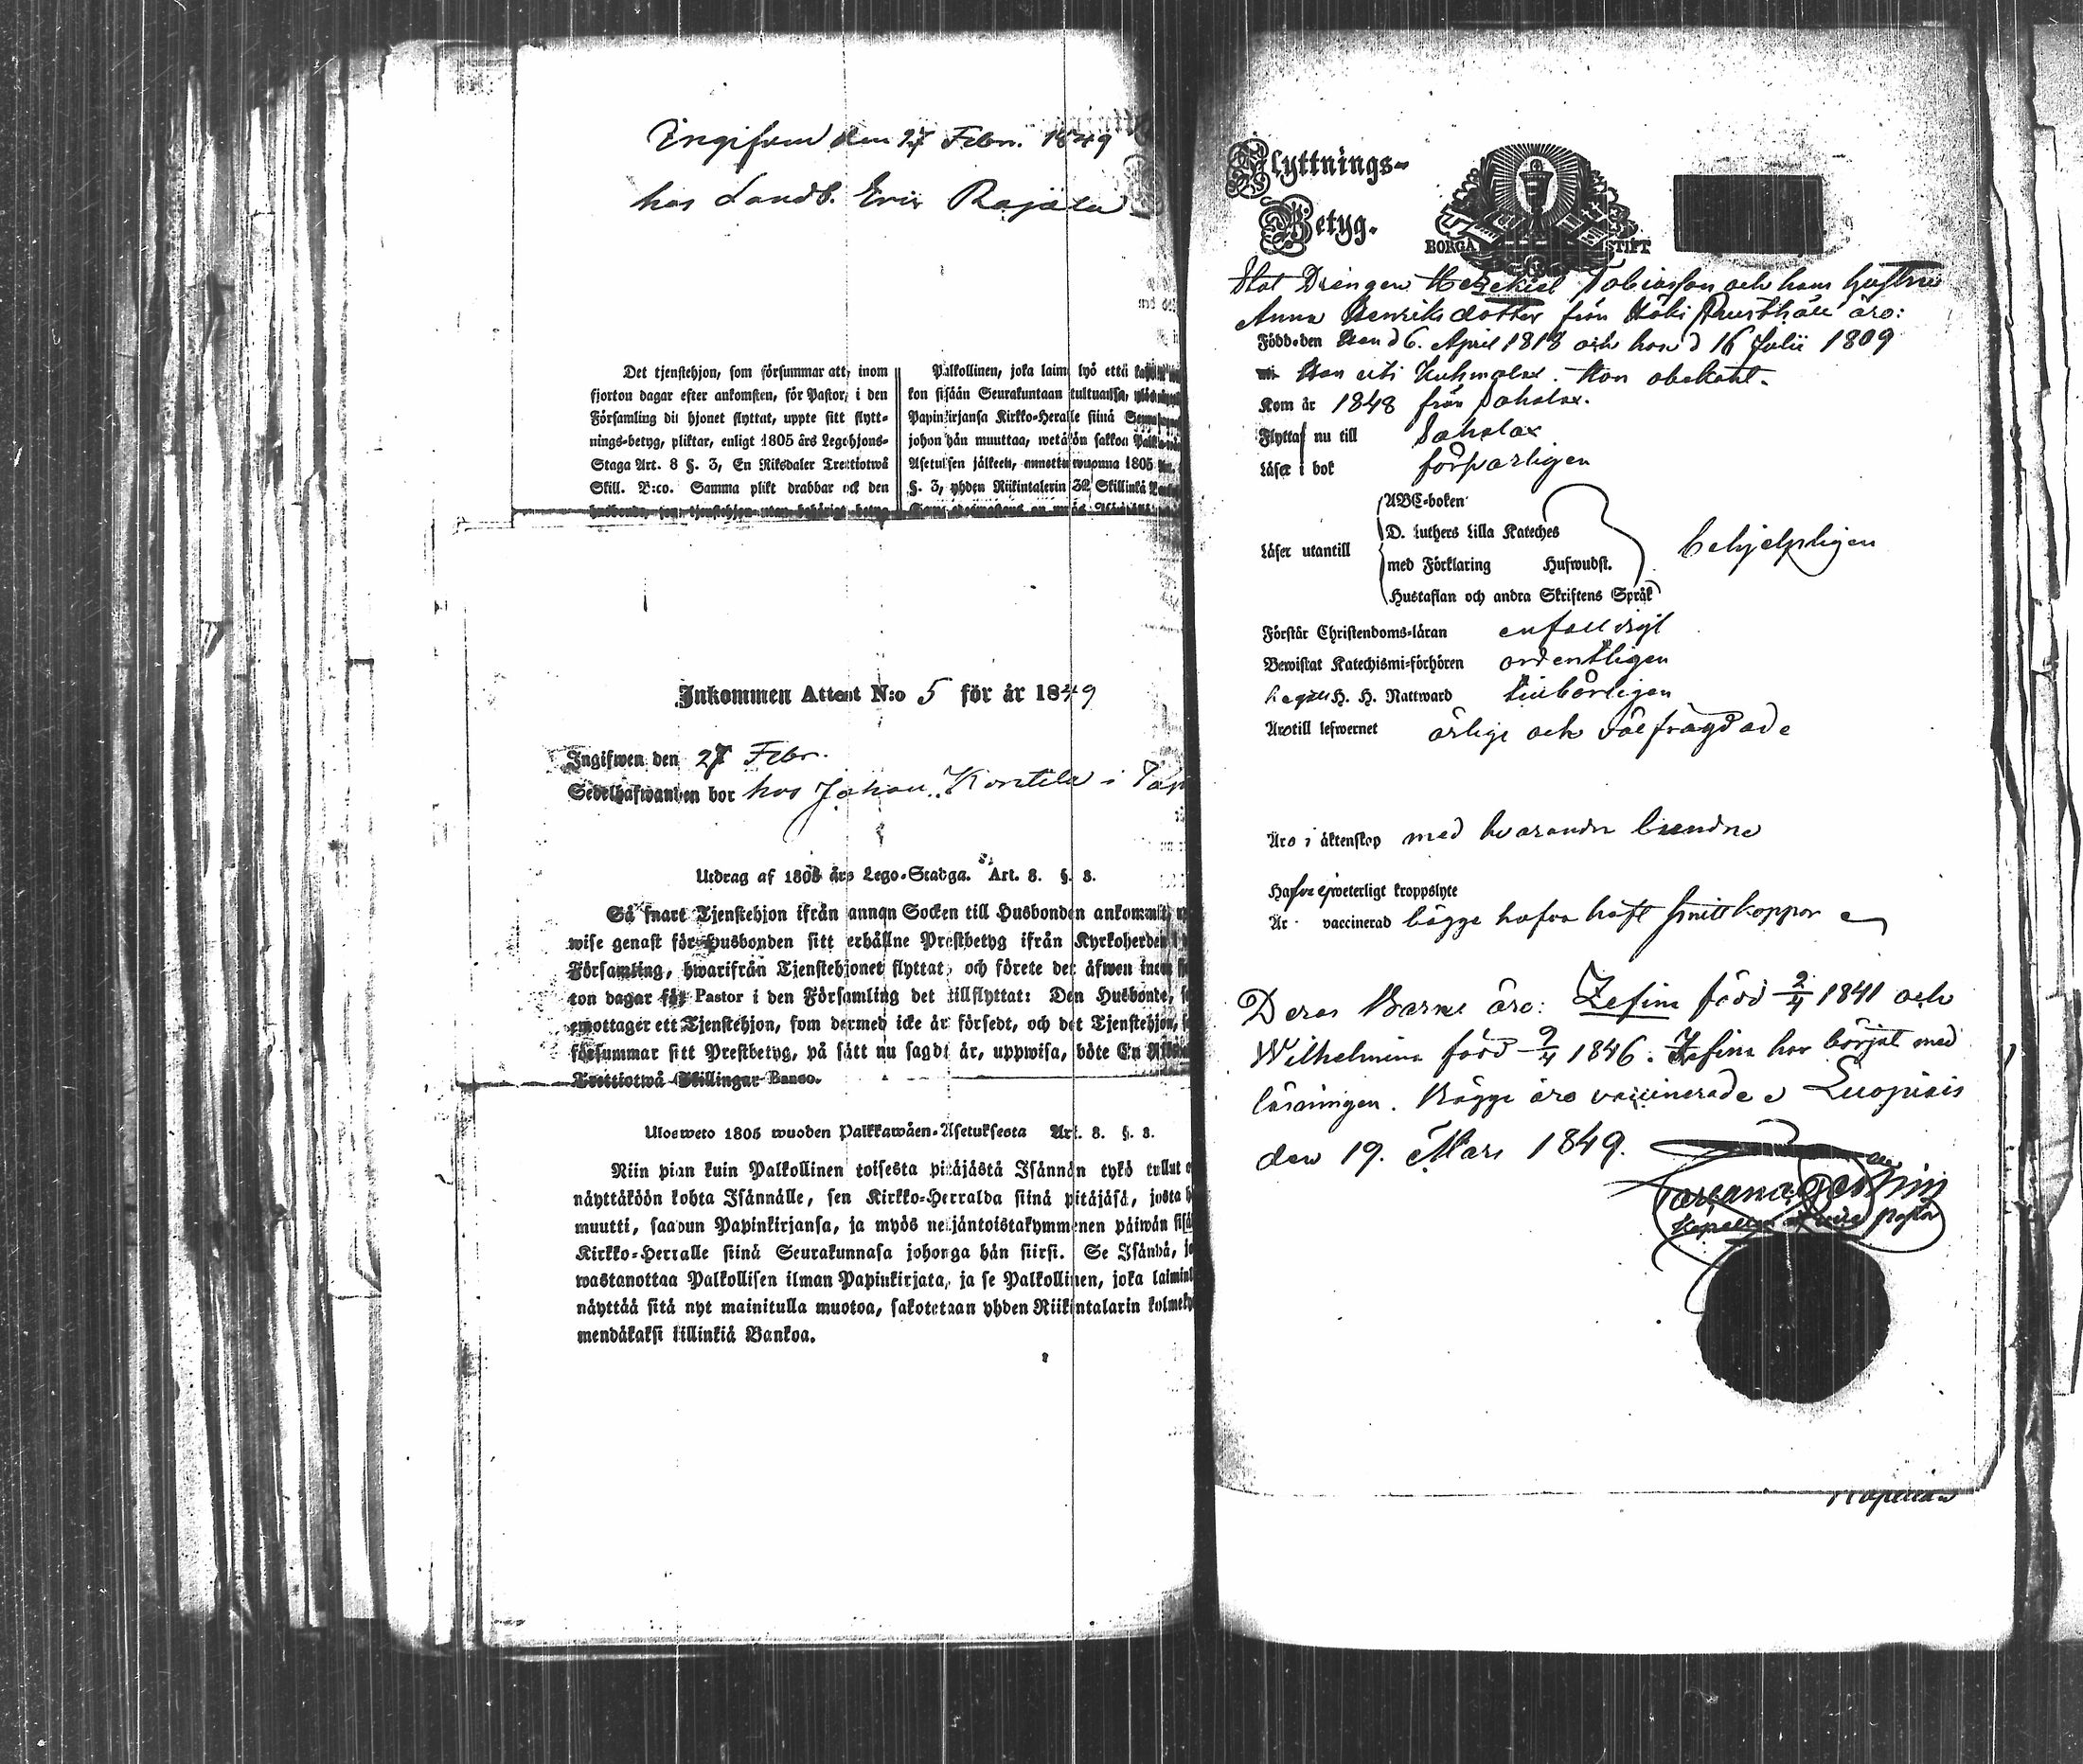 Ingifven den 27 Febr. 1849
hos Landb. Eric Rajala
Det tjenstehjon, som försummar att, inom
fjorton dagar efter ankomsten, för Pastor, i den
Församling dit hjonet flyttat, uppte sitt flytt-
nings-betyg, pliktar, enligt 1805 års Legohjons-
Staga Art. 8 §. 3, En Riksdaler Trettiotwå
Skill. B:co. Samma plikt drabbar ock den
husbonde, som tjenstehjon utan behörigt betyg
Palkollinen, joka laimi lyö että
kon sisään Seurakuntaan tultuansa,
Papinkirjansa Kirkko-Heralle siinä
johon hän muuttaa, wetäkön sakkoa
Asetuksen jälkeen, annettu wuonna 1805
§. 3, yhden Riikintalerin 32 Skillinkä
Inkommen Attest N:o 5 för år 1849
Ingifwen den 27 Febr.
Sedelhafwanden bor hos Johan Korttila i
Utdrag af 1805 års Lego-Stadga. Art. 8. §. 3.
Så snart Tjenstehjon ifrån annan Socken till Husbonden ankommit,
wise genast för Husbonden sitt erhållne Prestbetyg ifrån Kyrkoherden
Församling, hwarifrån Tjenstehjonet flyttat, och förete det äfwen inom
ton dagar för Pastor i den Församling det tillflyttat: Den Husbonde,
emottager ett Tjenstehjon, som dermed icke är försedt, och det Tjenstehjon,
försummar sitt Prestbetyg, på sätt nu sagdt är, uppwisa, böte En
Trettiotwå Skillingar Banco.
Ulosweto 1805 wuoden Palkkawäen-Asetuksesta Art. 8. §. 3.
Niin pian kuin Palkollinen toisesta pitäjästä Isännän tykö tullut
näyttäköön kohta Isännälle, sen Kirkko-Herralda siinä pitäjäsä, josta
muutti, saadun Papinkirjansa, ja myös neljäntoistakymmenen päiwän
Kirkko-Herralle siinä Seurakunnasa johonga hän siirsi. Se Isändä,
wastanottaa Palkollisen ilman Papinkirjata, ja se Palkollinen, joka
näyttää sitä nyt mainitulla muotoa, sakotetaan yhden Riikintalarin
mendäkaksi killinkiä Bankoa.
Flyttnings-
Betyg.
BORGÅ STIFT
Stat Drengen Hezekiel Tobiasson och hans hustru
Anna Henriksdotter från Rusthåll äro:
Född den Han d 6. April 1818 och hon d 16 Julii 1809
Han uti Kuhmalax. Hon obekant.
Kom år 1848 från Sahalax.
Flyttaf nu till Sahalax
Läser i bok försvarligen
Läser utantill
ABC-boken
D. Luthers Lilla Kateches
med Förklaring Hufwudst.
Hustaflan och andra Skriftens Språk
behjelpligen
Förstår Christendoms-läran enfaldigt
Bewistat Katechismi-förhören ordentligen
Begått H. H. Nattward tillbörligen
Äro till lefwernet ärlige och välfrägdade
Äro i äktenskap med hvarandra bundna
Hafva ej weterligt kroppslyte
Är vaccinerad bägge hafva haft smittkoppor
Deras Barn äro: Zefina född 2/4 1841 och
Wilhelmina född 9/4 1846. Zefina har börjat med
läsningen. Bägge äro vaccinerade. Luopiois
den 19. Mars 1849.
Pastor